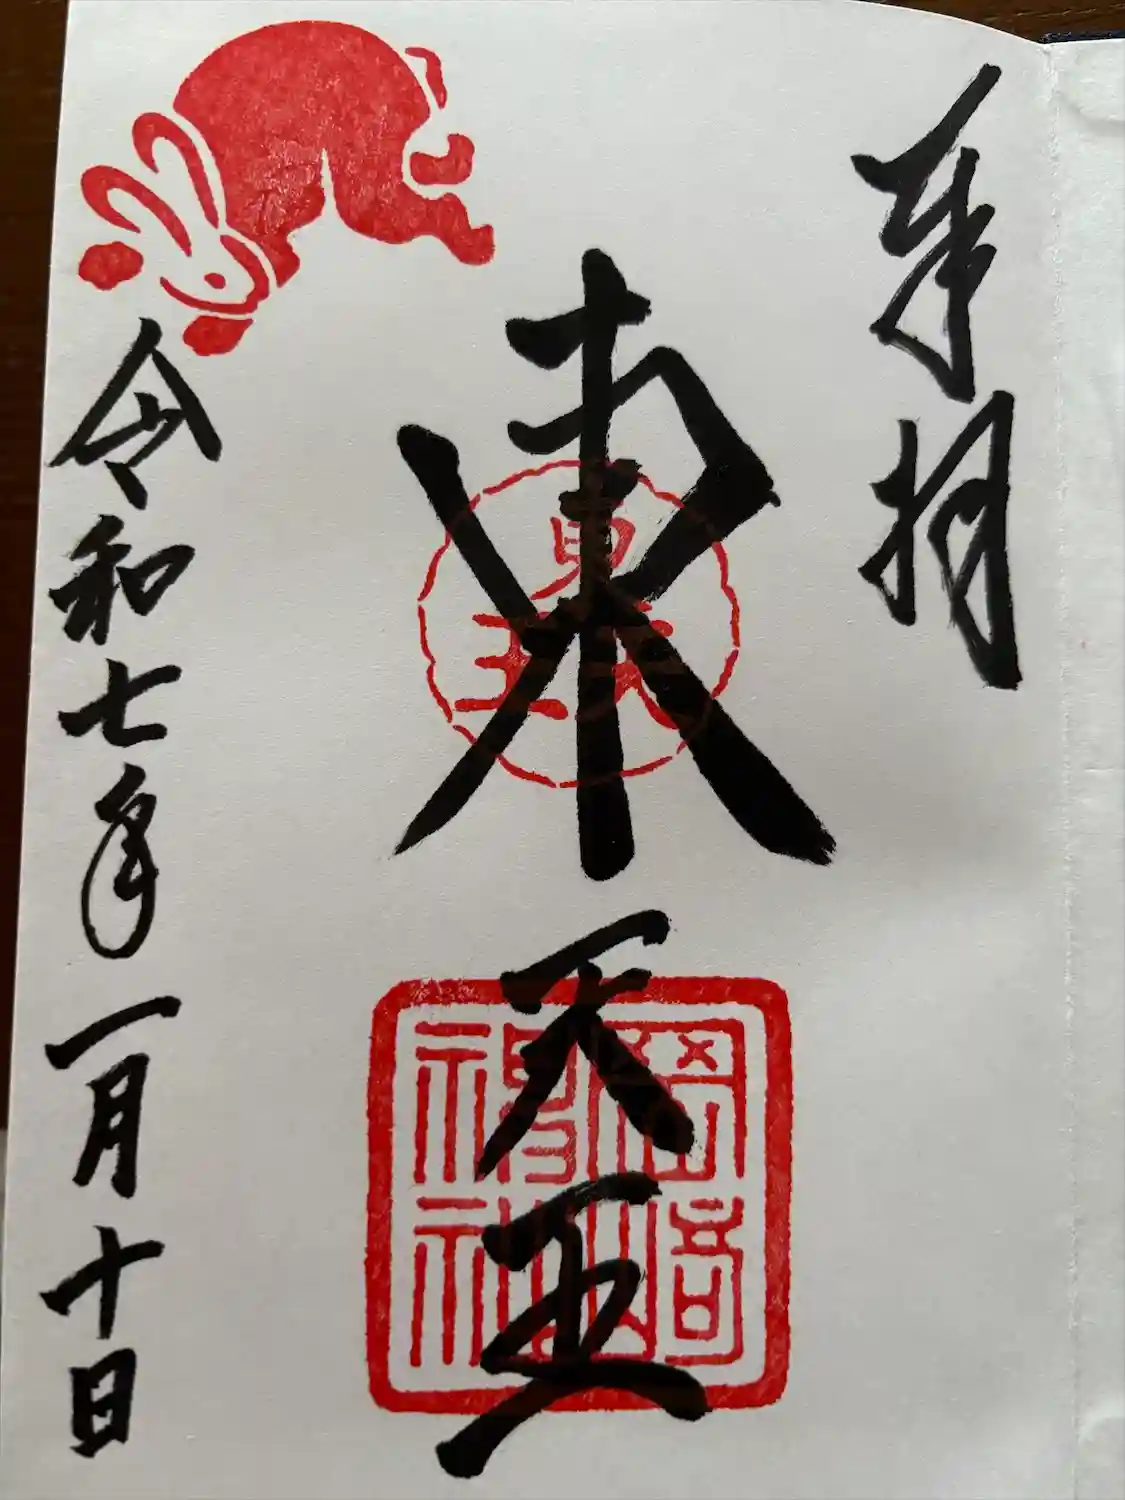 奉拝
東天王
東天王
岡﨑神社
令和七年一月十日